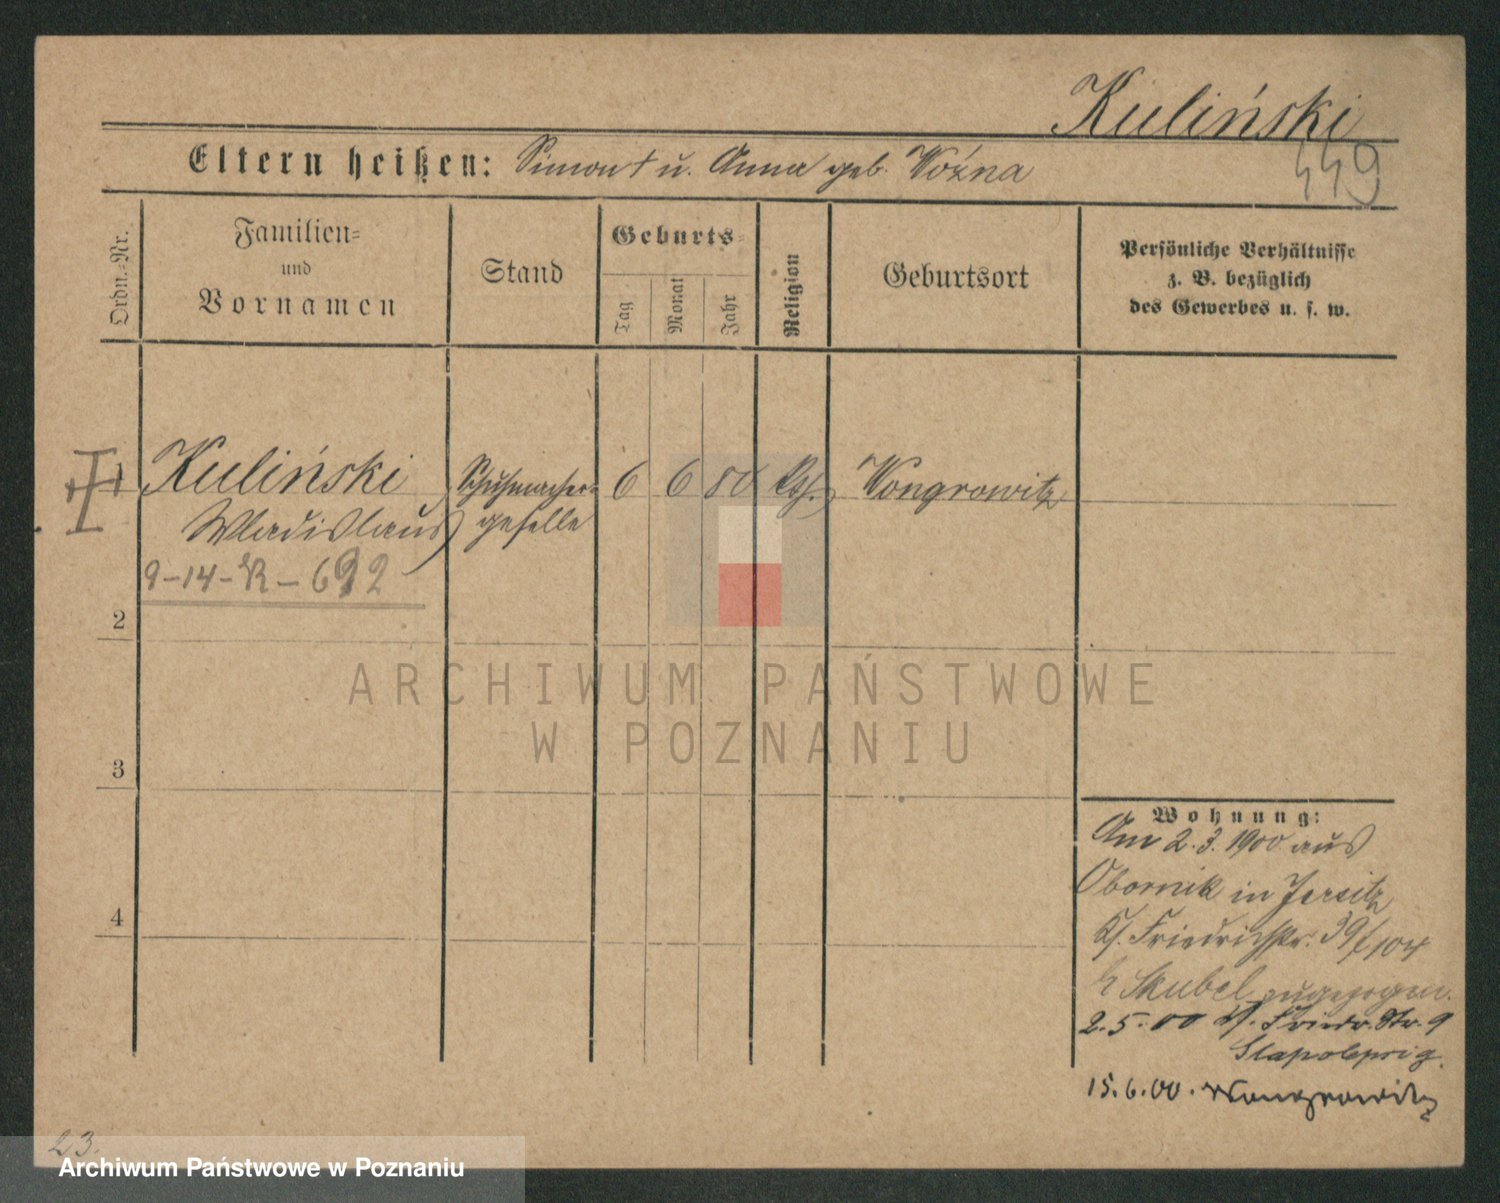 Kuliński
449
Eltern heißen: Simon † u. Anna geb. Woźna
Ordn.-Nr.
Familien-
und
Vornamen
Stand
Geburts-
Tag
Monat
Jahr
Religion
Geburtsort
Persönliche Verhältnisse
z. B. bezüglich
des Gewerbes u. s. w.
1
Kuliński
Wladislaus
Schuhmacher-
geselle
6 6 80 kth. Wongrowitz
9-14-R-692
2
3
4
Wohnung:
Am 2.3.1900 aus
Obornik in Jersitz
Kl. Friedrichstr. 39/104
b Skubel zugezogen.
2.5.00 Kl. Friedr. Str. 9
15.6.00. Wongrowitz
23.
ARCHIWUM PAŃSTWOWE
W POZNANIU
Archiwum Państwowe w Poznaniu